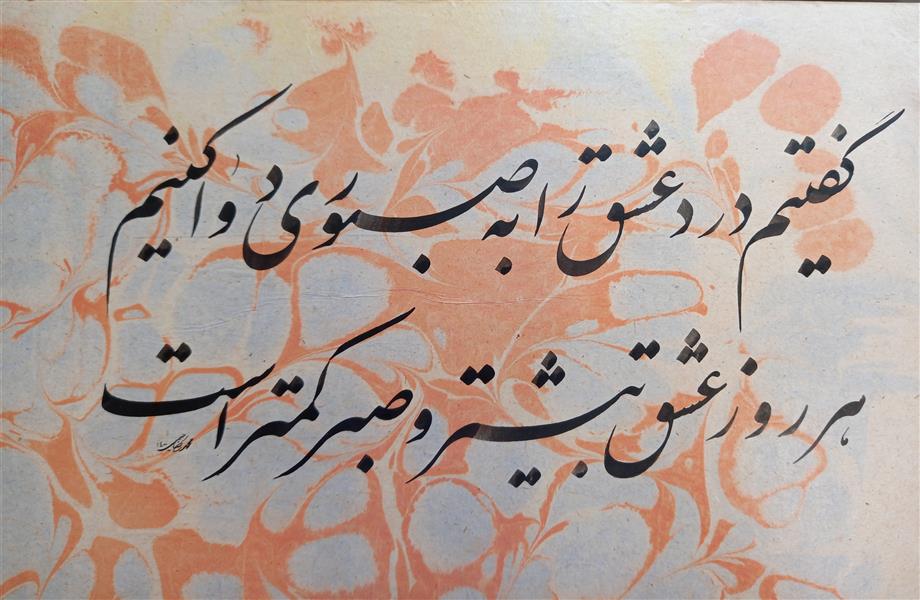 گفتیم درد عشق را به صبوری دوا کنیم
هر روز عشق بیشتر و صبر کمتر است